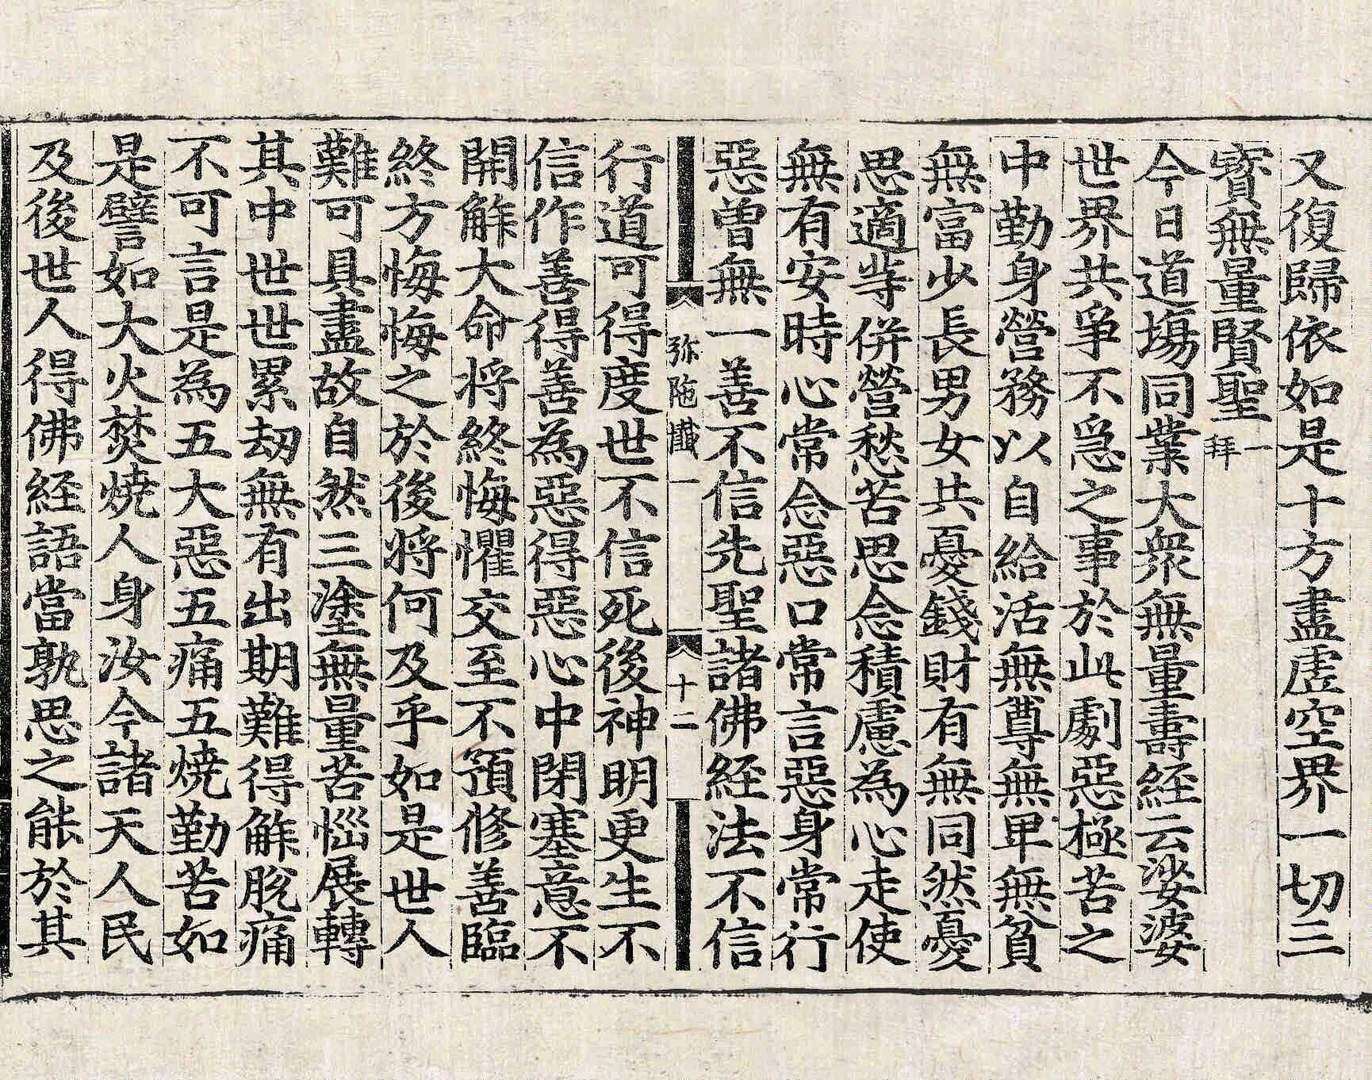 又復歸依如是十方盡虛空界一切三
寶無量賢聖一拜
今日道塲同業大衆無量壽経云娑婆
世界共爭不急之事於此劇惡極苦之
中勤身營務以自給活無尊無卑無貧
無富少長男女共憂錢財有無同然憂
思適等併營愁苦思念積慮為心走使
無有安時心常念惡口常言惡身常行
惡曽無一善不信先聖諸佛経法不信
弥陁懺一 十二
行道可得度世不信死後神明更生不
信作善得善為惡得惡心中閉塞意不
開解大命将終悔懼交至不預修善臨
終方悔悔之於後将何及乎如是世人
難可具盡故自然三塗無量苦惱展轉
其中世世累刼無有出期難得解脫痛
不可言是為五大惡五痛五燒勤苦如
是譬如大火焚燒人身汝今諸天人民
及後世人得佛経語當孰思之能於其